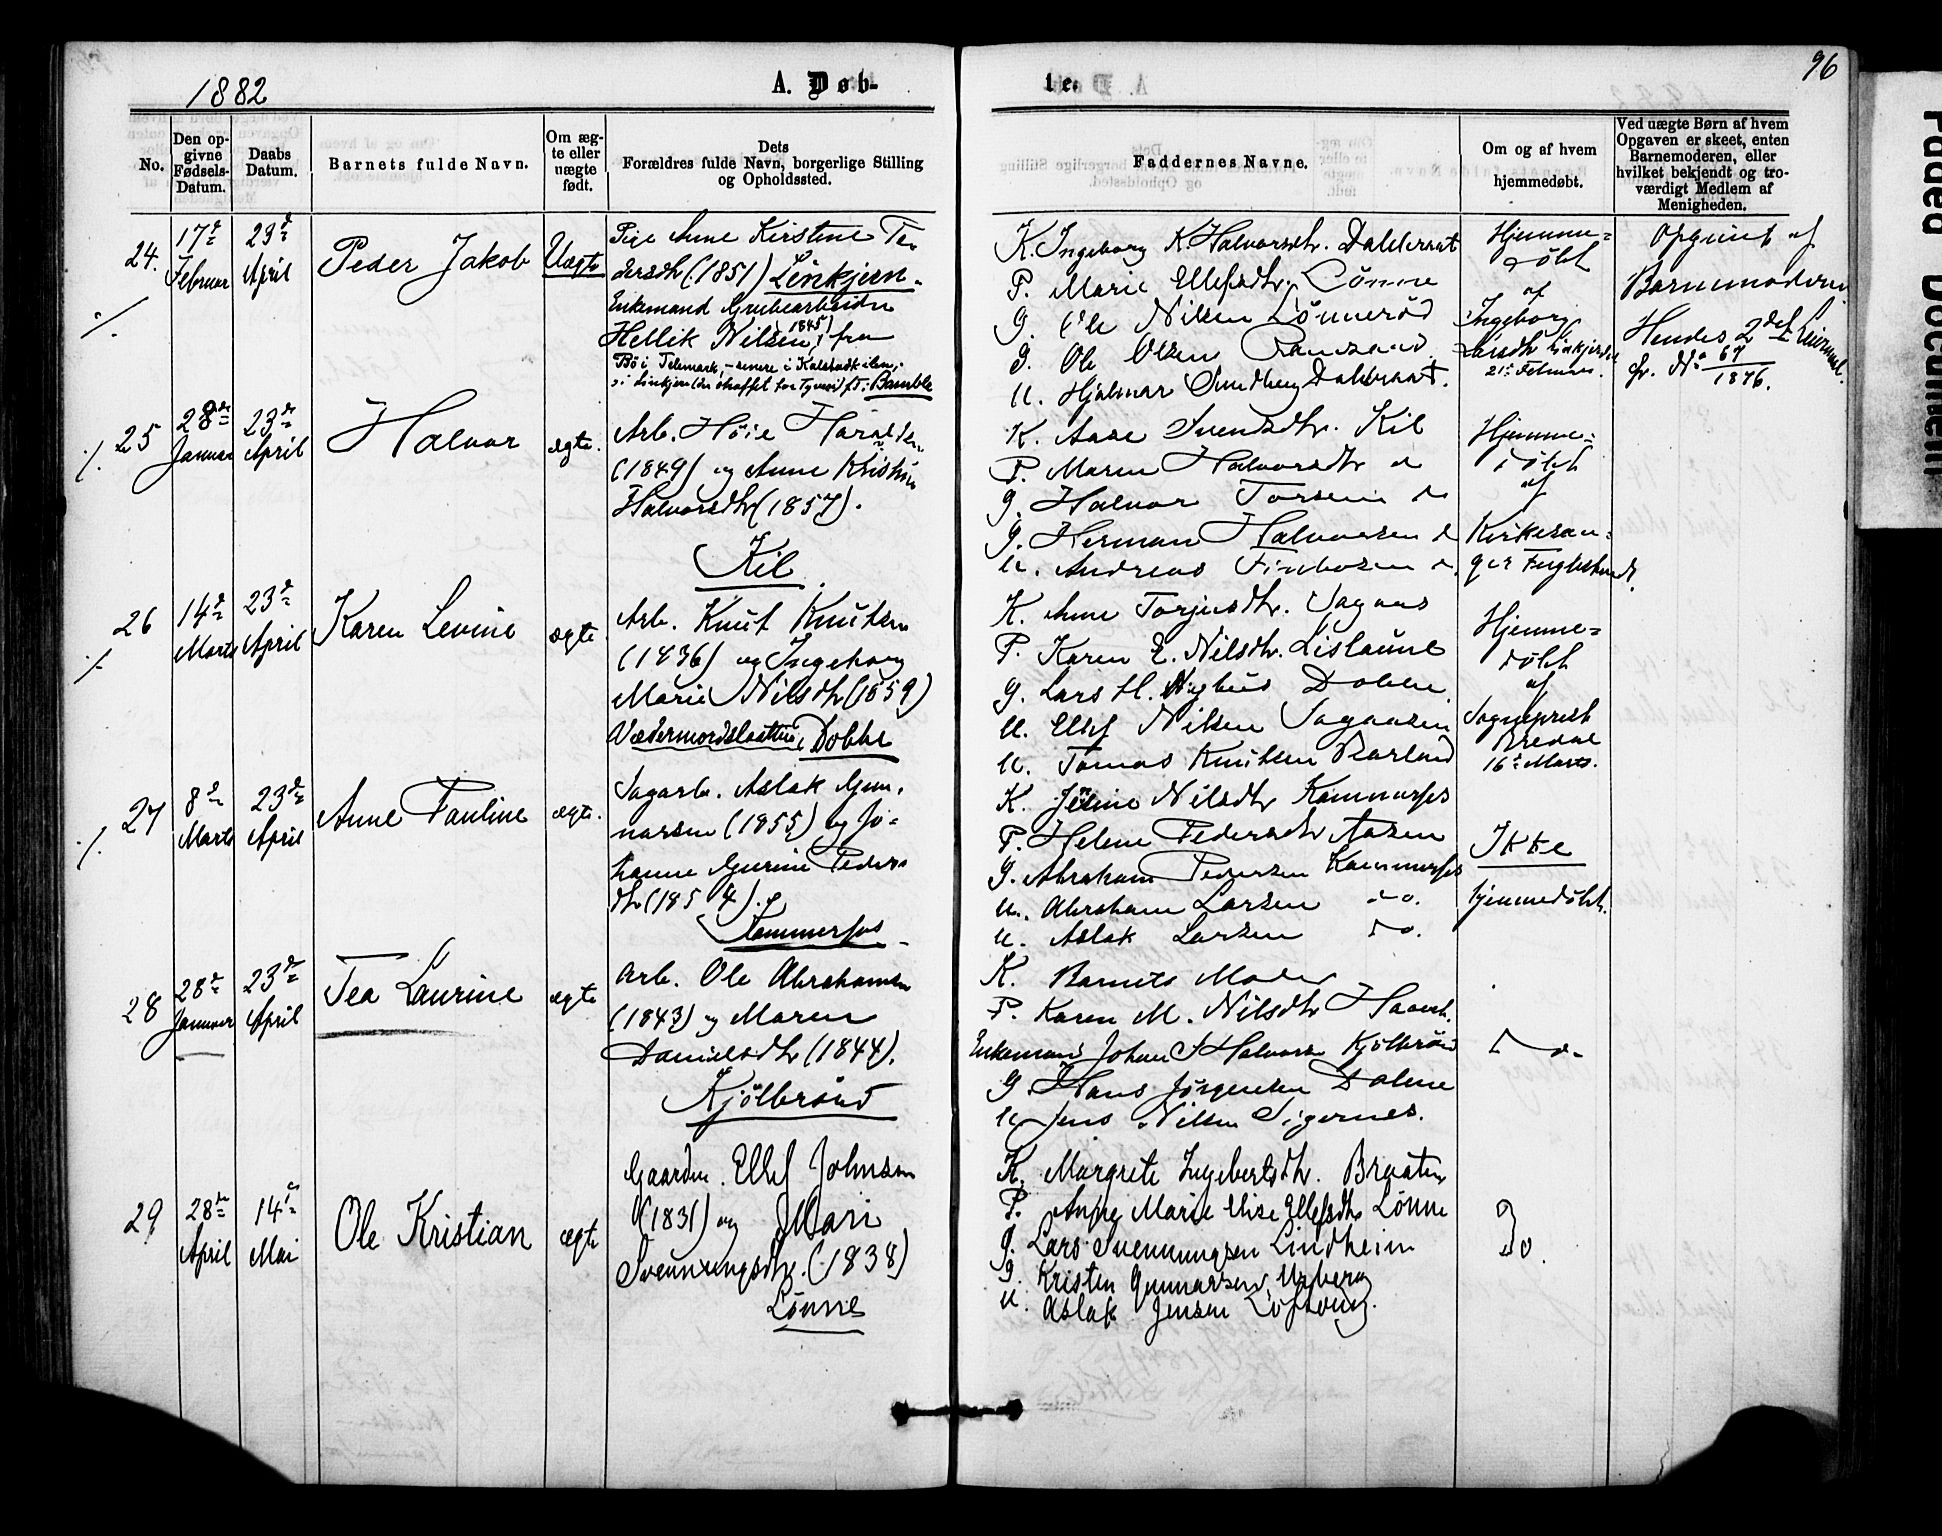 1882
A. Døb-
te.
96
No.
Den opgivne Fødsels-Datum.
Daabs Datum.
Barnets fulde Navn.
Om ægte eller uægte født.
Dets Forældres fulde Navn, borgerlige Stilling og Opholdssted.
Faddernes Navne.
Om og af hvem hjemmedøbt.
Ved uægte Børn af hvem Opgaven er skeet, enten Barnemoderen, eller hvilket bekjendt og troværdigt Medlem af Menigheden.
24.
17de Februar
23de April
Peder Jakob
Uægte
Pige Anne Kirstine Pe
dersdtr (1851) Linkjern.
Enkemand Grubearbeider
Hellik Nilsen (1845) fra
Bø i Telemark, - senere i Kalstadkilen,
Bamble
K. Ingeborg K. Halvorsdtr. Dalderaat
P. Marie Ellefsdtr. Lønne
G. Ole Nilsen Lønnerød
G. Ole Olsen
U. Hjalmar Sundberg Dalderaat.
Hjemme=
døbt
af
Ingeborg
Larsdtr Linkjern
21de Februar.
Opgivet af
Barnemoderen
Hendes 2det Leiermaal.
cfr. No 67
1876.
25
28de Januar
23de April
Halvor
ægte.
Arb. Høie Haraldsen
(1849) og Anne Kristine
Halvorsdtr (1857).
Kil
K. Aase Svendsdtr. Kil
P. Maren Halvorsdtr do
G. Halvor Torsen do
G. Herman Halvorsen do
U. Andreas Finbosen do
Hjemme=
døbt
af
Kirkesan=
ger Fuglestvedt.
26
14de Marts
23de April
Karen Levine
ægte.
Arb. Knut Knutsen
(1836) og Ingeborg
Marie Nilsdtr (1859)
Vædermordslastien, Dobbe
K. Anne Torjusdtr. Sagaas
P. Karen E. Nilsdtr. Lislaune
G. Lars H. Nyhus Dobbe
U. Ellef Nilsen Sagaasen
U. Tomas Knutsen Rarland
Hjemme=
døbt
af
Sogneprest
Bredal
16de Marts.
27
8de Marts
23de April
Anne Pauline
ægte.
Sagarb. Aslak Gun.
narsen (1855) og Jo=
hanne Gurine Peders
dtr (1854).
Tommerfos
K. Jensine Nilsdtr Kammerfos
P. Helene Pedersdtr Aasen
G. Abraham Pedersen Kammerfos
U. Abraham Larsen do.
U. Aslak Larsen do.
Ikke
hjemmedøbt.
28
28de Januar
23de April
Tea Laurine
ægte
Arb. Ole Abrahamsen
(1843) og Maren
Danielsdtr (1844).
Kjølbrønd
K. Barnets Moder
P. Karen M. Nilsdtr Haaert.
Enkemand Johan S Halvorsen Kjølbrønd
G. Hans Jørgensen Dobbe
U. Jens Nilsen Sigernes.
do
29
28de April
14de Mai
Ole Kristian
ægte
Gaardm. Ellef Johnsen
(1831) og Mari
Svennungsdtr. (1838)
Lønne
K. Margrete Ingebertsdtr. Braaten
P. Anne Marie Elise Ellefsdtr Lønne
G. Lars Svennungsen Lindheim
G. Kristen Gunnarsen, Urberg
U. Aslak Jensen
Do.
Faded Document